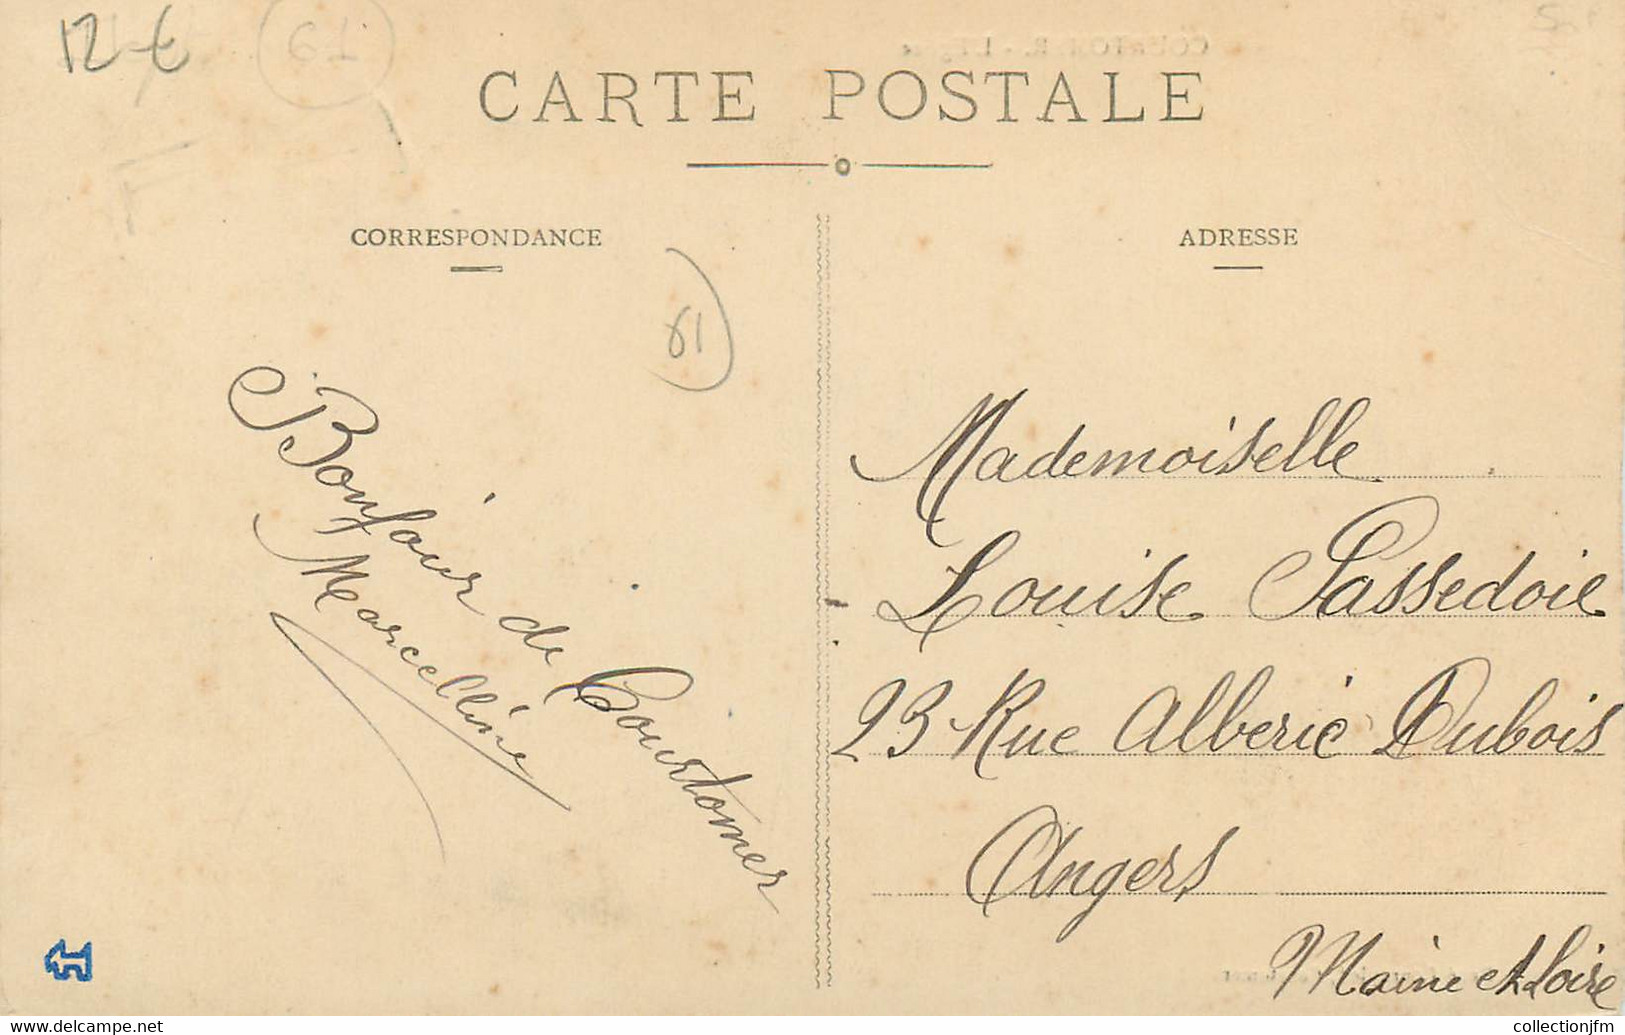 12 €
61
CARTE POSTALE
CORRESPONDANCE
61
Bonjour de Courtomer
Marcelline
ADRESSE
Mademoiselle
Louise Passedoie
23 Rue Alberic Dubois
Angers
Maine et Loire
collectionjfm